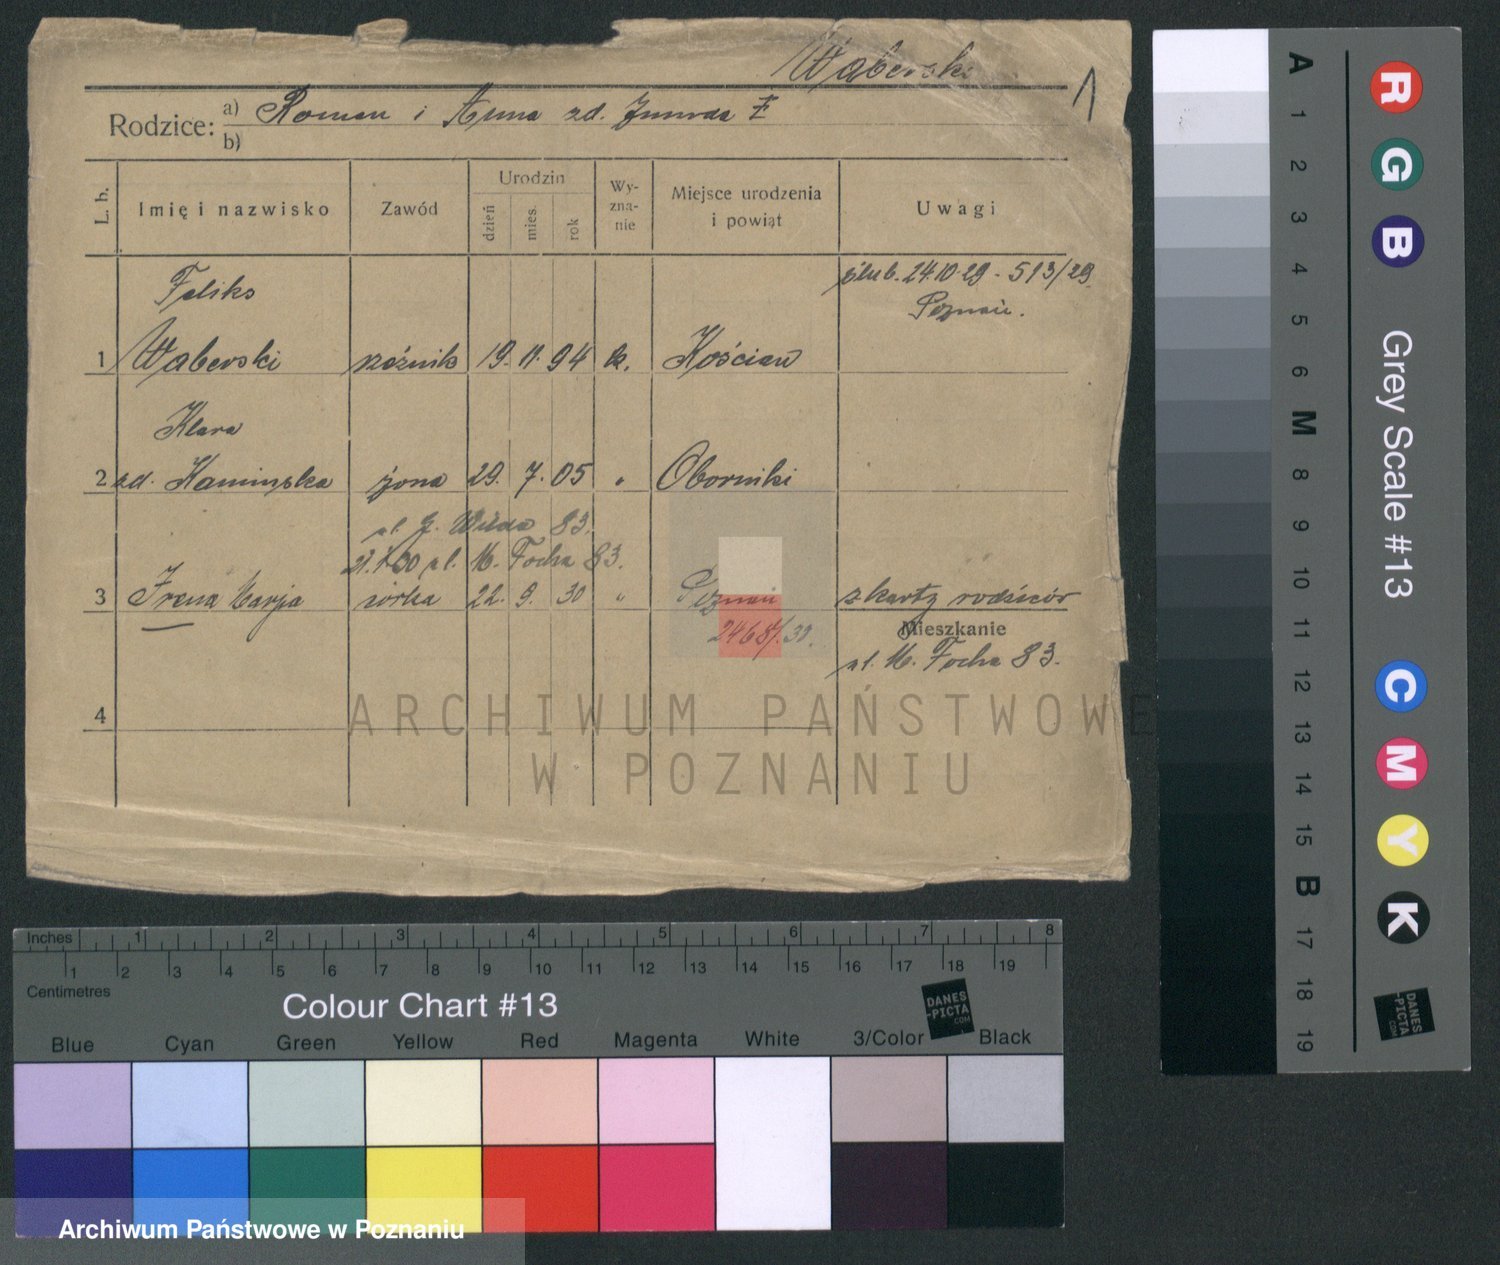 Wąberski
1
Rodzice: a) Roman i Anna zd.
b)
L. b.
Imię i nazwisko
Zawód
Urodzin
dzień
mies.
rok
Wy-
zna-
nie
Miejsce urodzenia
i powiąt
Uwagi
ślub. 24.10.29 - 513/29.
Poznań.
Feliks
1 Wąberski rzeźnik 19. 11. 94 k. Kościan
Klara
2 zd. Kamińska żona 29. 7. 05 " Oborniki
ul. G. Wilda 83.
21.1.30 ul. M. Focha 83.
3 Irena Marja córka 22. 9. 30 " Poznań z karty rodziców
2468/30.
Mieszkanie
ul. M. Focha 83.
4
ARCHIWUM PAŃSTWOWE
W POZNANIU
Inches 1 2 3 4 5 6 7 8
1 2 3 4 5 6 7 8 9 10 11 12 13 14 15 16 17 18 19
Centimetres
Colour Chart #13
DANES
-PICTA
.COM
Blue Cyan Green Yellow Red Magenta White 3/Color Black
Archiwum Państwowe w Poznaniu
A 1 2 3 4 5 6 M 8 9 10 11 12 13 14 15 B 17 18 19
R G B
Grey Scale #13
C M Y K
DANES
-PICTA
.COM